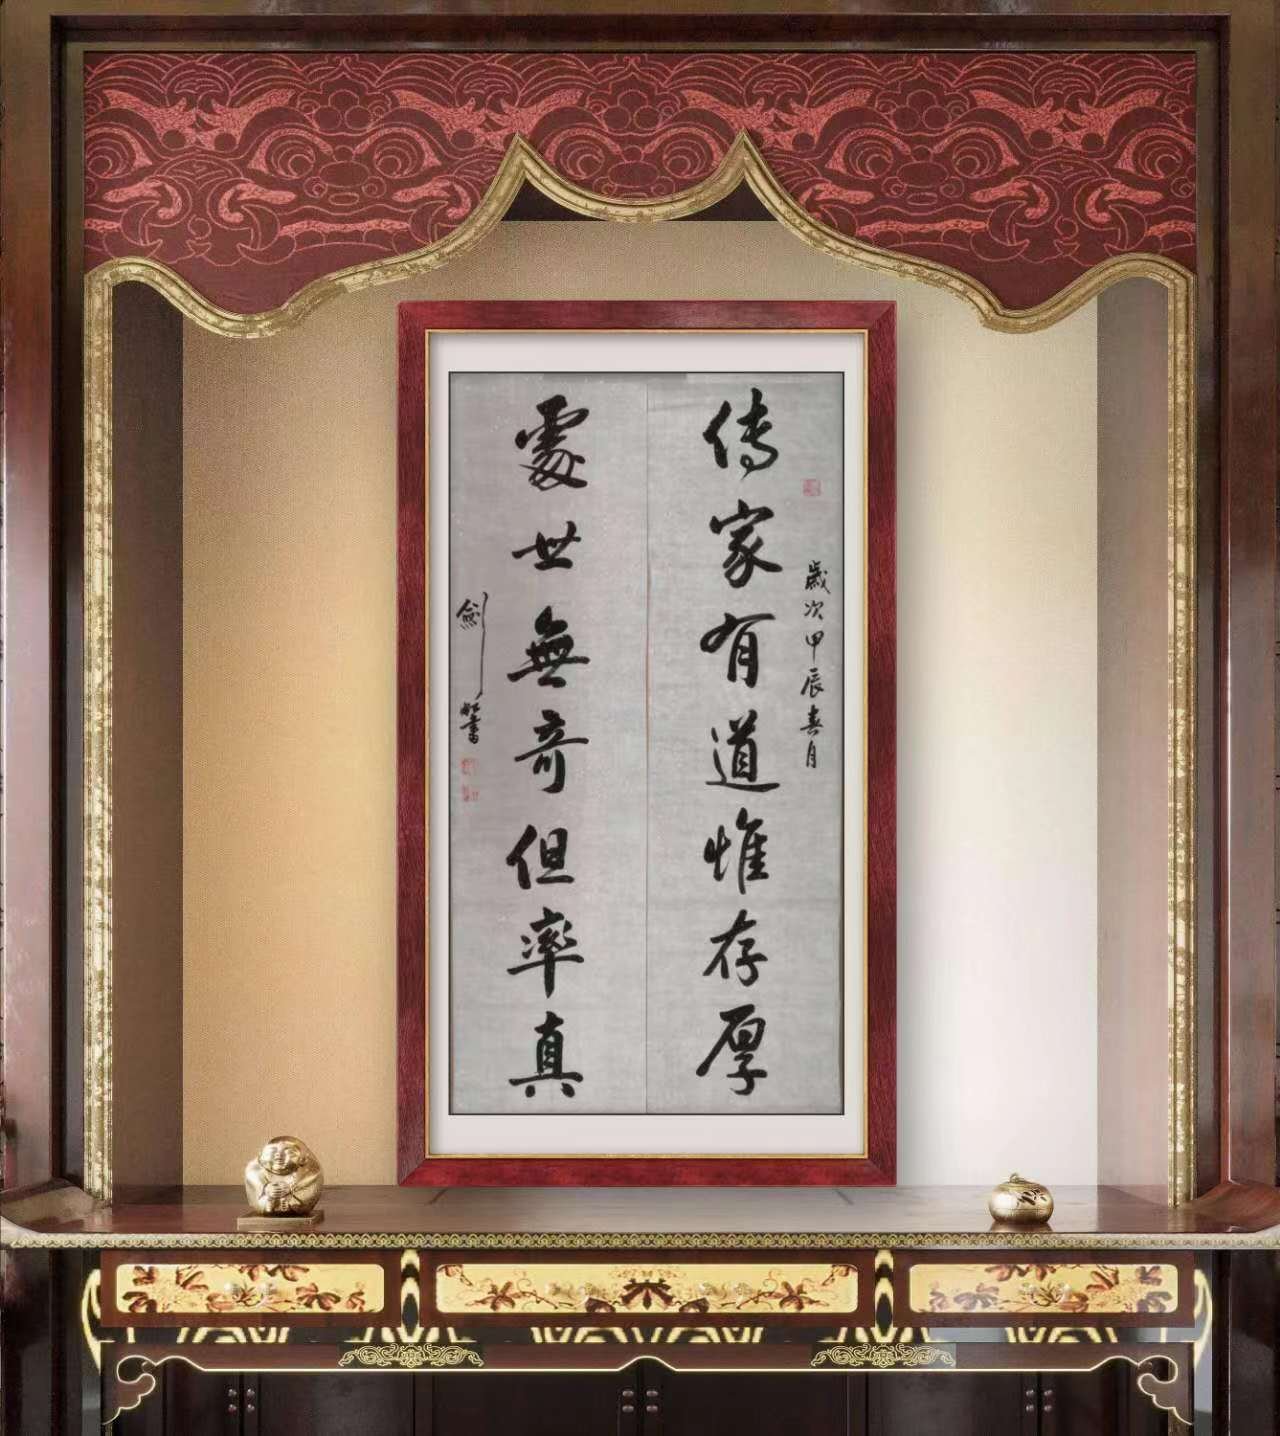 歲次甲辰春月
傳家有道惟存厚
處世無奇但率真
劍 書